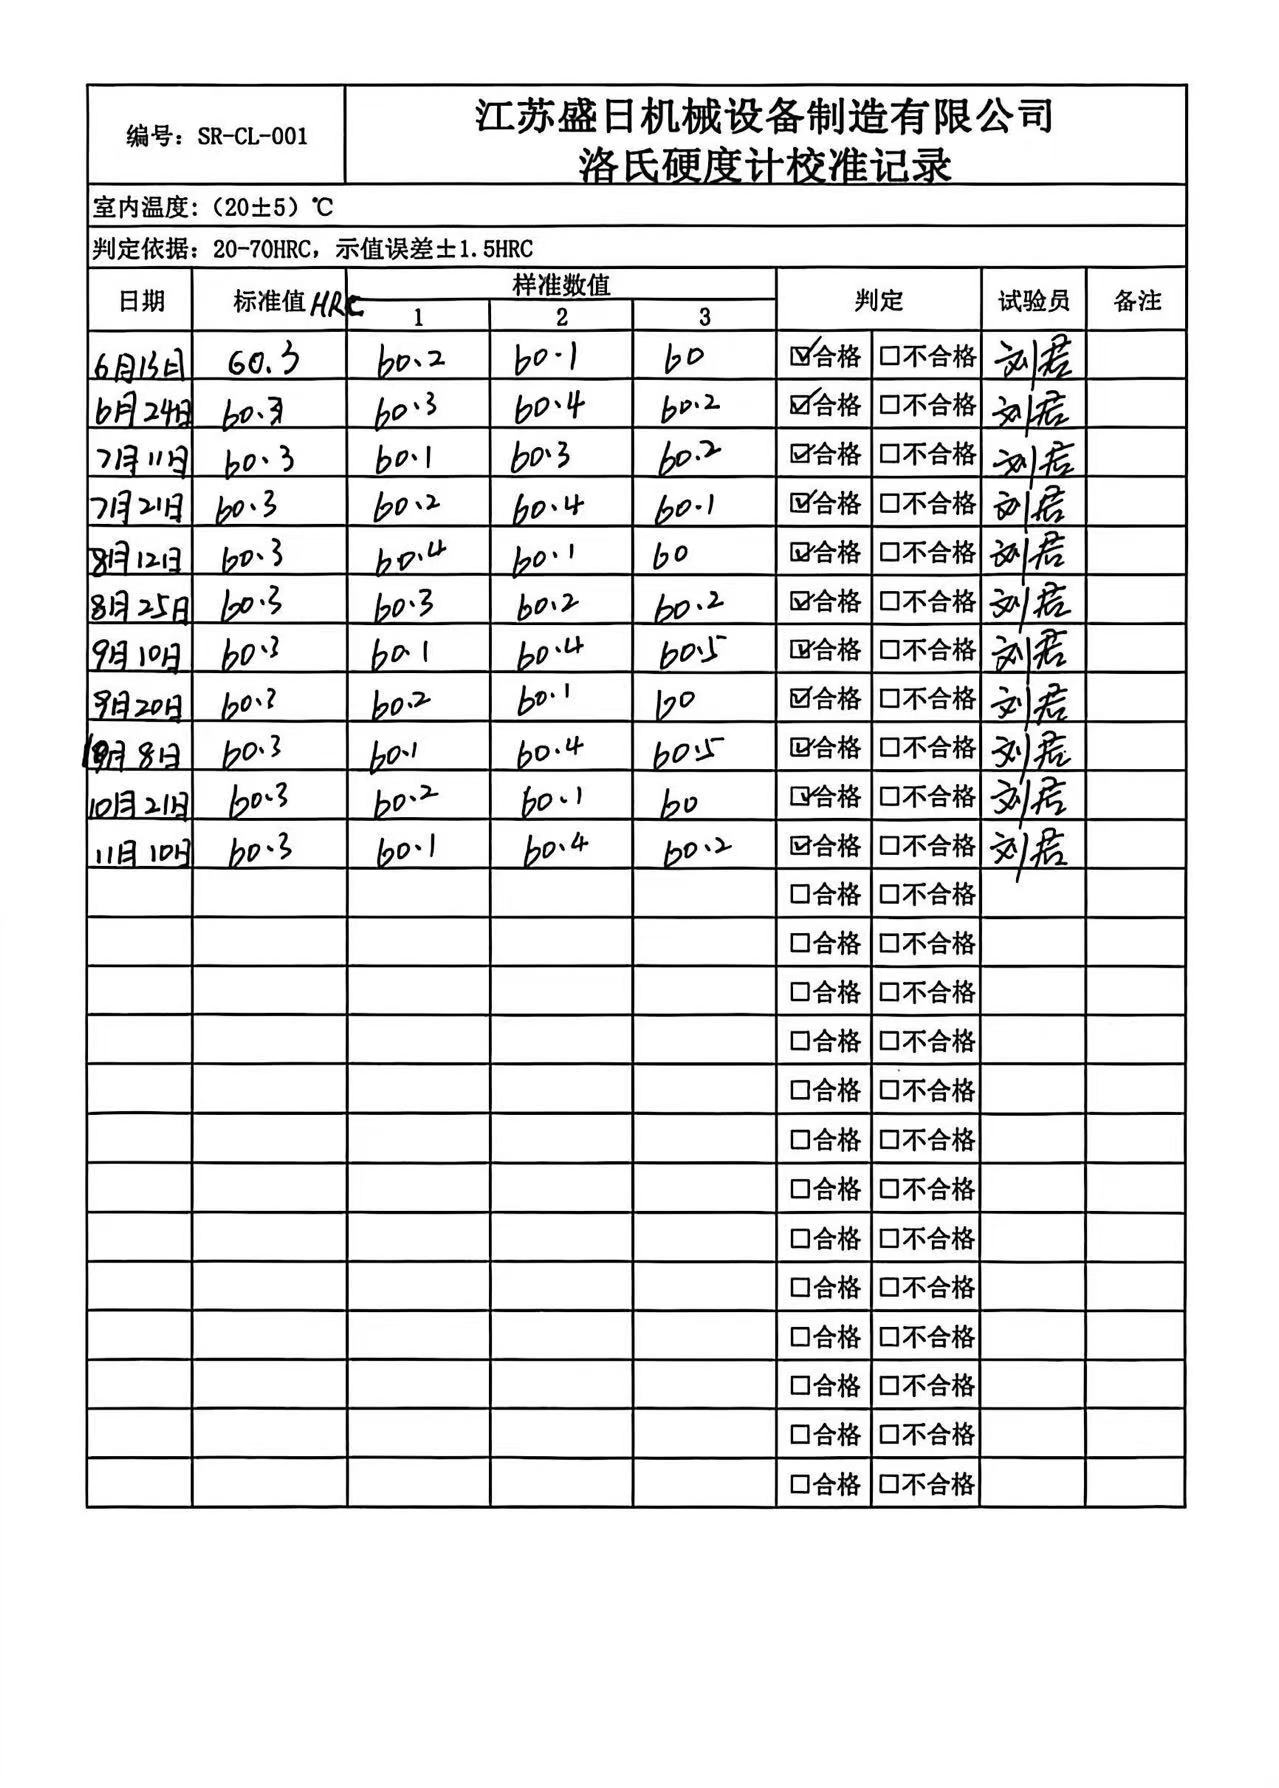 编号：SR-CL-001
江苏盛日机械设备制造有限公司
洛氏硬度计校准记录
室内温度：（20±5）℃
判定依据：20-70HRC，示值误差±1.5HRC
日期 标准值HRC 样准数值 判定 试验员 备注
1 2 3
6月15日 60.3 60.2 60.1 60 ☑合格 □不合格 刘君
6月24日 60.3 60.3 60.4 60.2 ☑合格 □不合格 刘君
7月11日 60.3 60.1 60.3 60.2 ☑合格 □不合格 刘君
7月21日 60.3 60.2 60.4 60.1 ☑合格 □不合格 刘君
8月12日 60.3 60.4 60.1 60 ☑合格 □不合格 刘君
8月25日 60.3 60.3 60.2 60.2 ☑合格 □不合格 刘君
9月10日 60.3 60.1 60.4 60.5 ☑合格 □不合格 刘君
9月20日 60.3 60.2 60.1 60 ☑合格 □不合格 刘君
10月8日 60.3 60.1 60.4 60.5 ☑合格 □不合格 刘君
10月21日 60.3 60.2 60.1 60 ☑合格 □不合格 刘君
11月10日 60.3 60.1 60.4 60.2 ☑合格 □不合格 刘君
□合格 □不合格
□合格 □不合格
□合格 □不合格
□合格 □不合格
□合格 □不合格
□合格 □不合格
□合格 □不合格
□合格 □不合格
□合格 □不合格
□合格 □不合格
□合格 □不合格
□合格 □不合格
□合格 □不合格